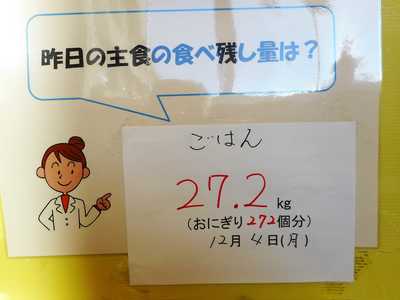 昨日の主食の食べ残し量は？
ごはん
27.2 kg
(おにぎり272個分)
12月4日(月)